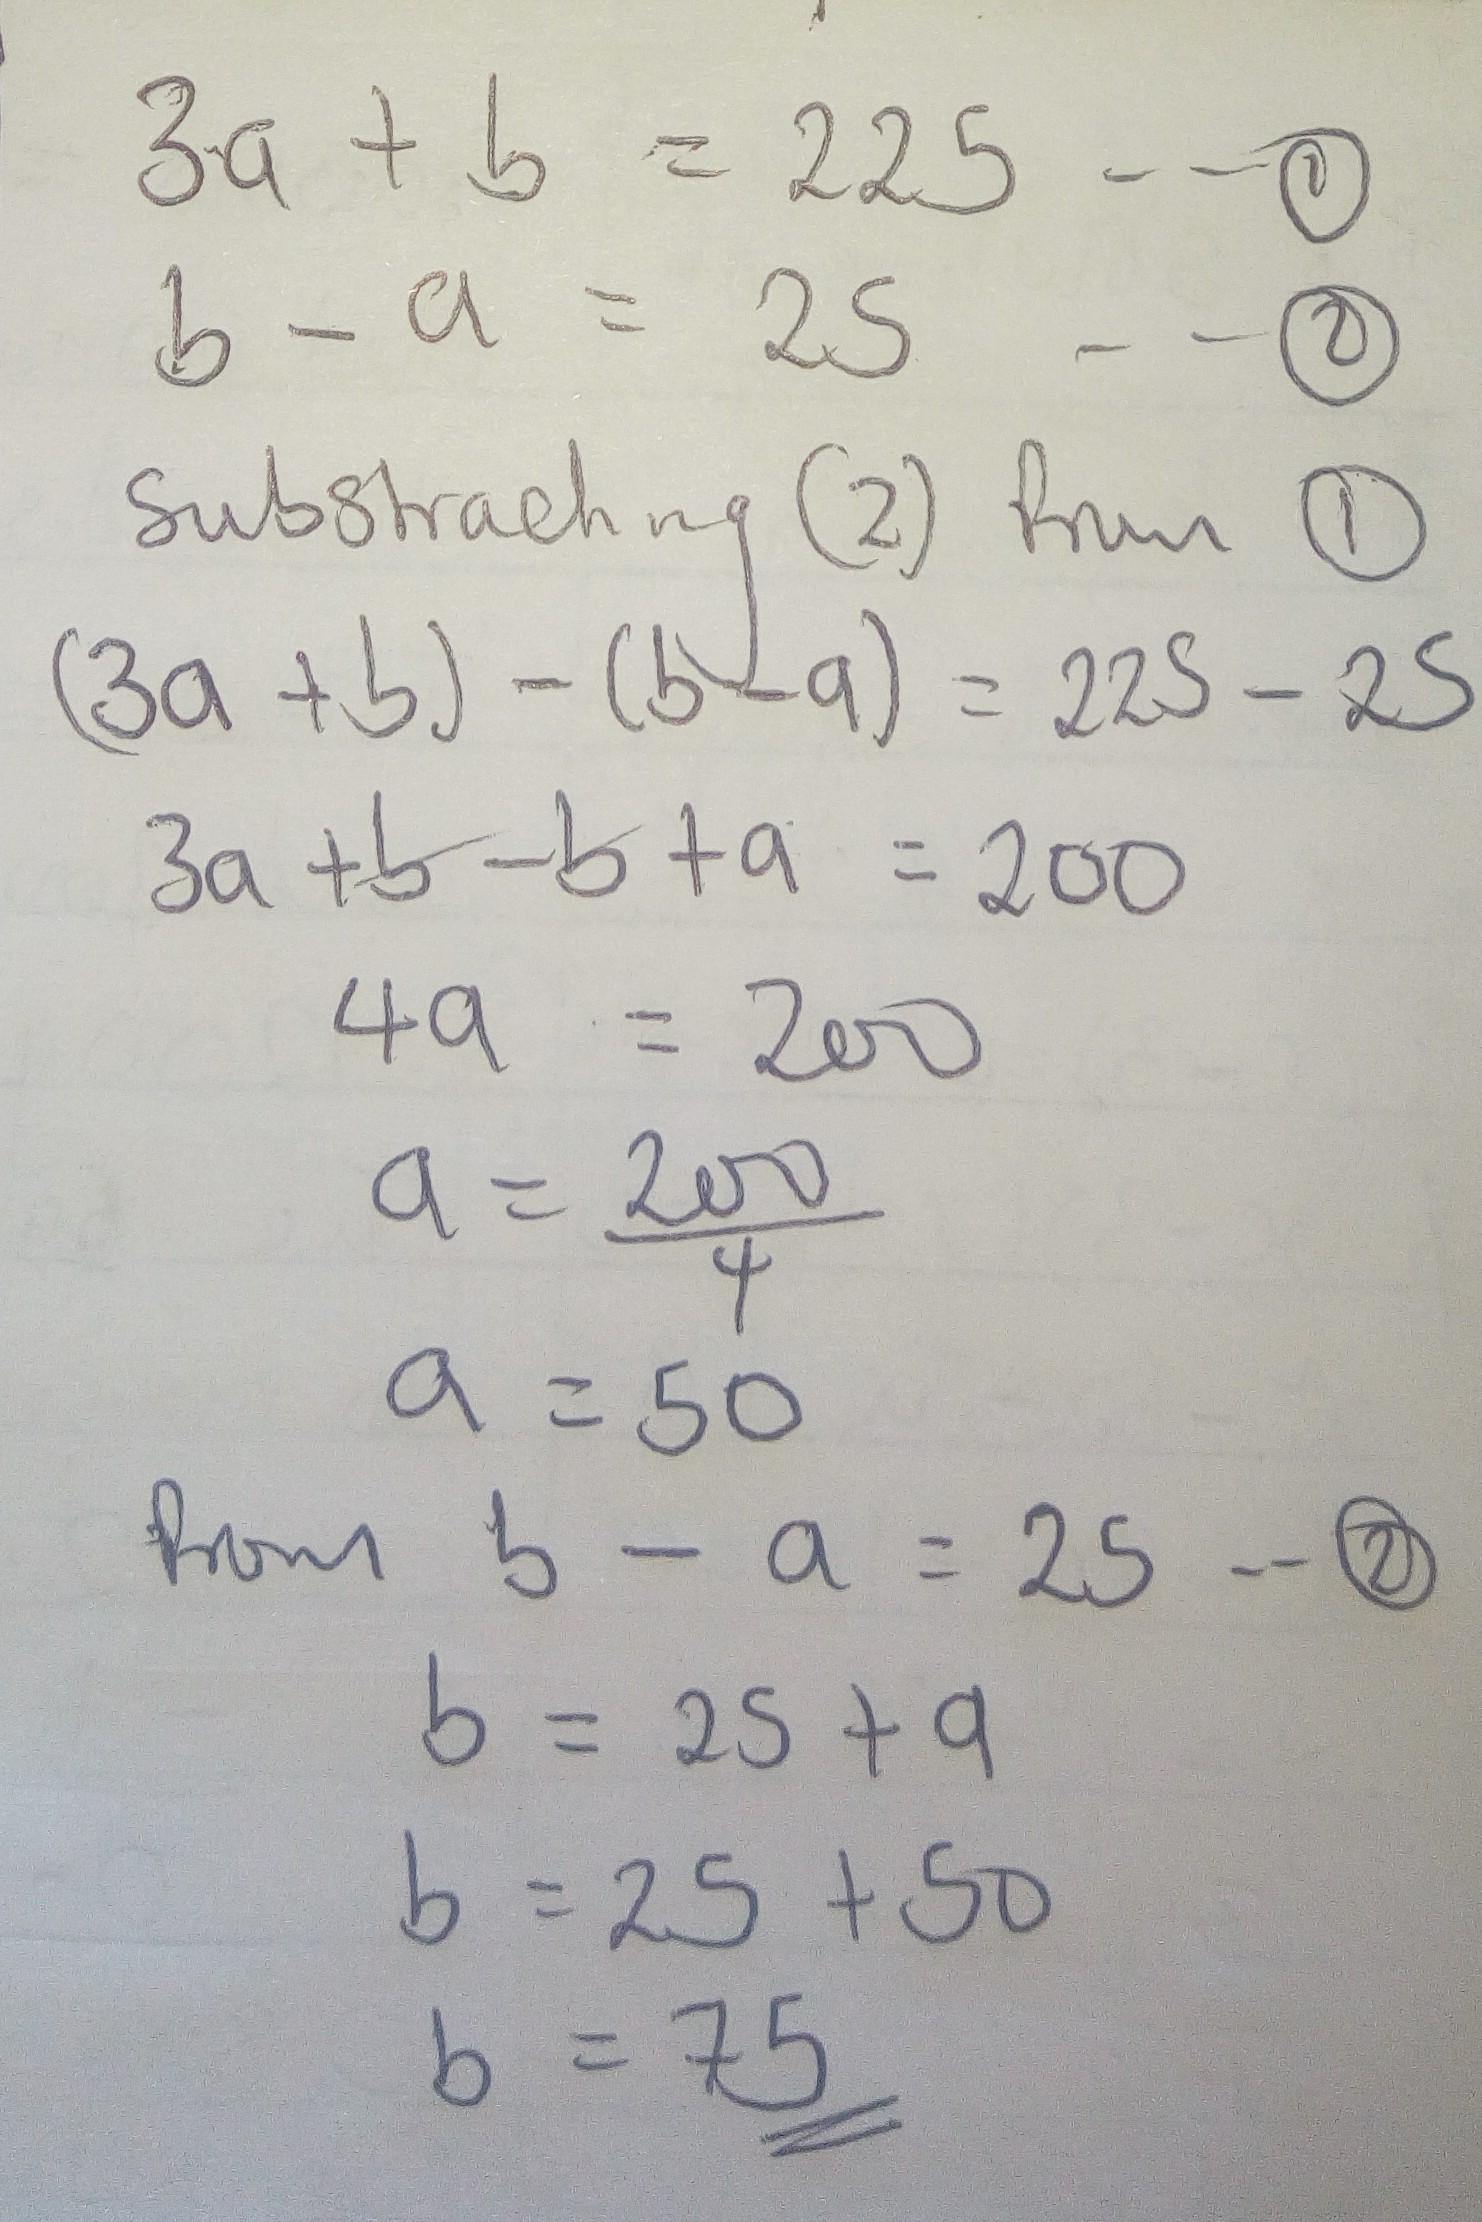 3a + b = 225 --①
b - a = 25 --②
Substracting (2) from ①
(3a + b) - (b - a) = 225 - 25
3a + b - b + a = 200
4a = 200
a = 200/4
a = 50
From b - a = 25 --②
b = 25 + a
b = 25 + 50
b = 75